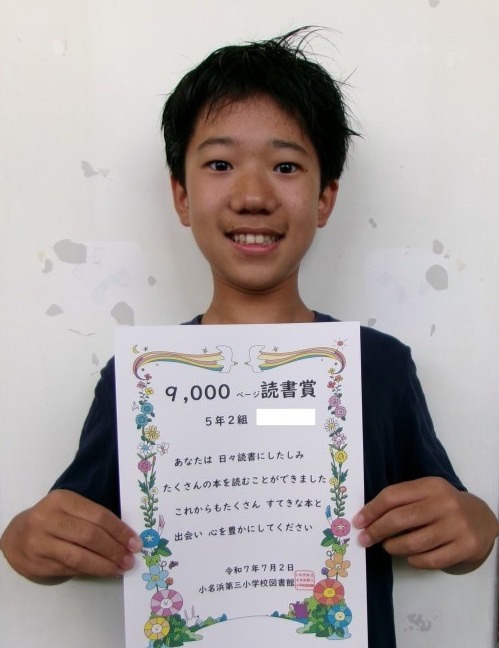 9,000 ページ 読書賞
5年2組
あなたは 日々読書にしたしみ
たくさんの本を読むことができました
これからもたくさん すてきな本と
出会い 心を豊かにしてください
令和7年7月2日
小名浜第三小学校図書館